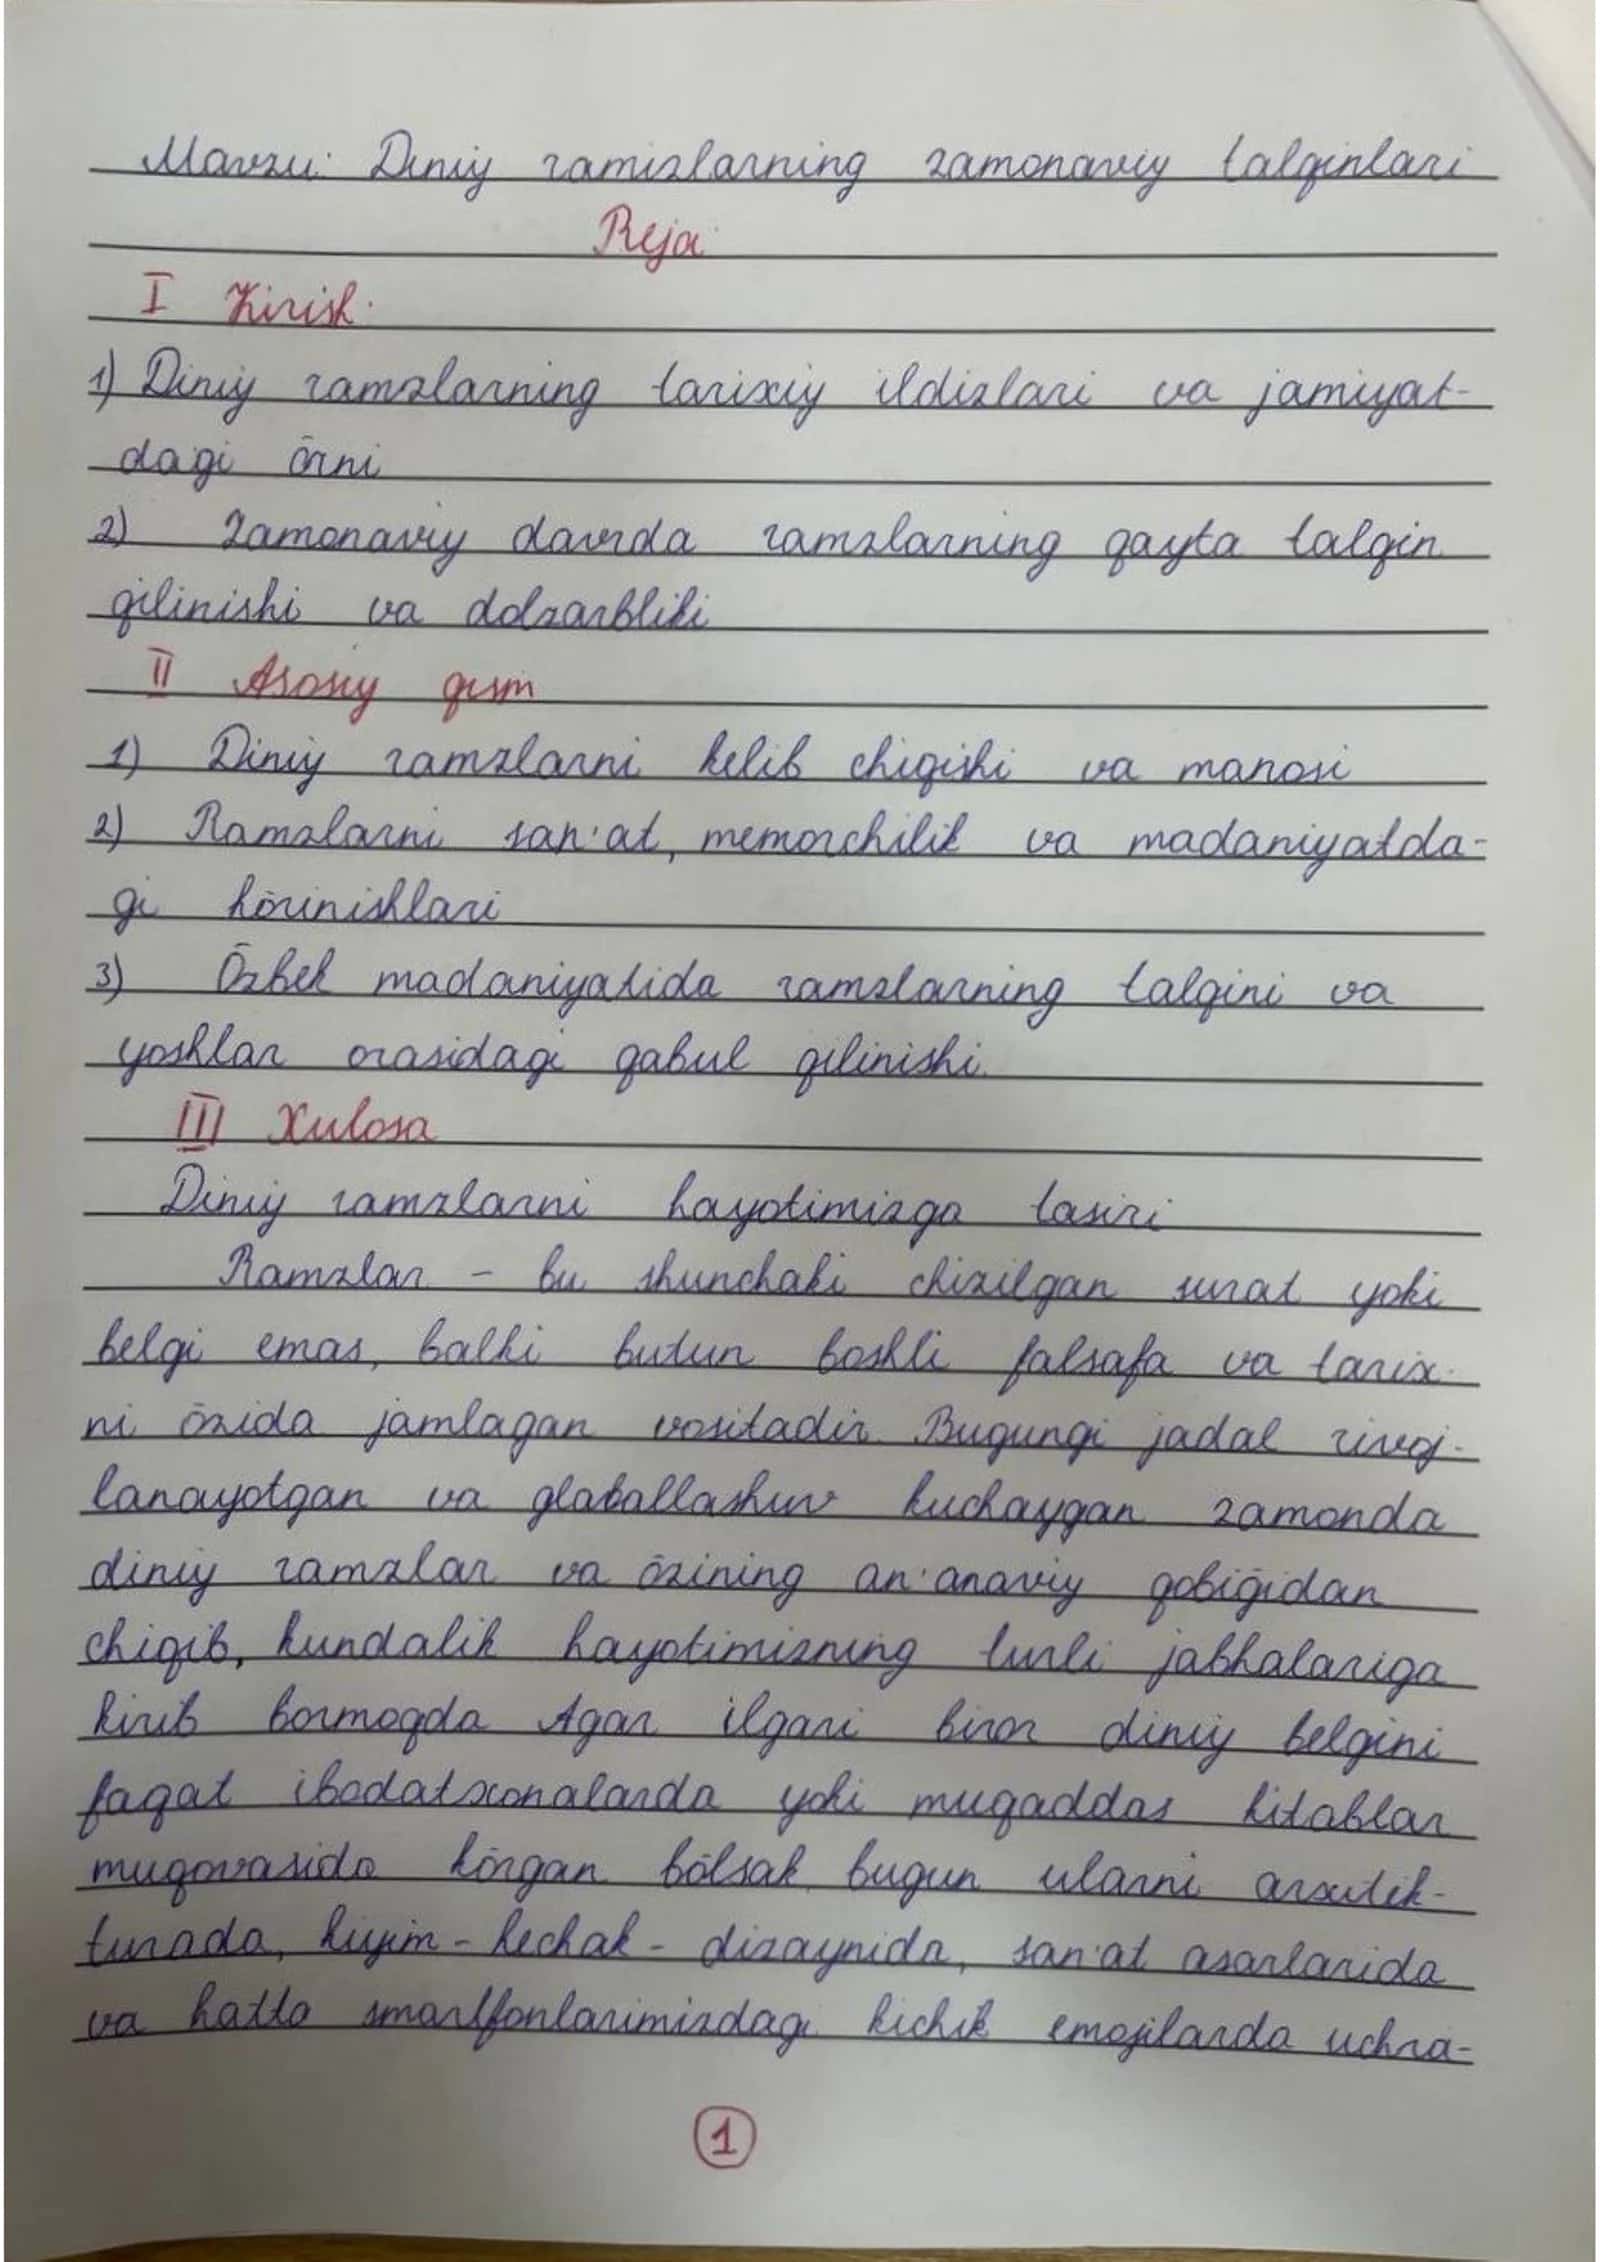 Mavzu: Diniy ramizlarning zamonaviy talqinlari
Reja:
I Kirish.
1) Diniy ramzlarning tarixiy ildizlari va jamiyat-
dagi ōrni
2) Zamonaviy davrda ramzlarning qayta talqin
qilinishi va dolzarbliki
II Asosiy qism
1) Diniy ramzlarni kelib chiqishi va manosi
2) Ramzlarni san'at, memorchilik va madaniyatda-
gi kōrinishlari
3) Ōzbek madaniyatida ramzlarning talqini va
yoshlar orasidagi qabul qilinishi.
III Xulosa
Diniy ramzlarni hayotimizga tasiri
Ramzlar - bu shunchaki chizilgan surat yoki
belgi emas, balki butun boshli falsafa va tarix-
ni ōzida jamlagan vositadir. Bugungi jadal rivoj-
lanayotgan va glaballashuv kuchaygan zamonda
diniy ramzlar va ōzining an'anaviy qobiğidan
chiqib, kundalik hayotimizning turli jabhalariga
kirib bormoqda Agar ilgari biror diniy belgini
faqat ibodatxonalarda yoki muqaddas kitablar
muqovasida kōrgan bōlsak bugun ularni arxitek-
turada, kiyim-kechak-dizaynida, san'at asarlarida
va hatto smartfonlarimizdagi kichik emojilarda uchra-
1